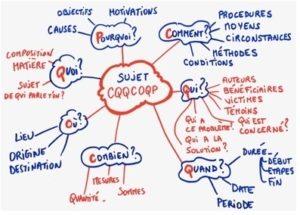 OBJECTIFS
MOTIVATIONS
CAUSES
POURQUOI?
COMMENT?
PROCEDURES
MOYENS
CIRCONSTANCES
MÉTHODES
CONDITIONS
COMPOSITION
MATIÈRE
QUOI?
SUJET
DE QUI PARLE T'ON?
SUJET
CQQCOQP
QUI?
AUTEURS
BÉNÉFICIAIRES
VICTIMES
TÉMOINS
QUI A
CE PROBLÈME?
QUI EST
CONCERNÉ?
QUI A LA
SOLUTION?
OÙ?
LIEU
ORIGINE
DESTINATION
COMBIEN?
MESURES
QUANTITÉ
SOMMES
QUAND?
DURÉE
DÉBUT
ETAPES
FIN
DATE
PERIODE